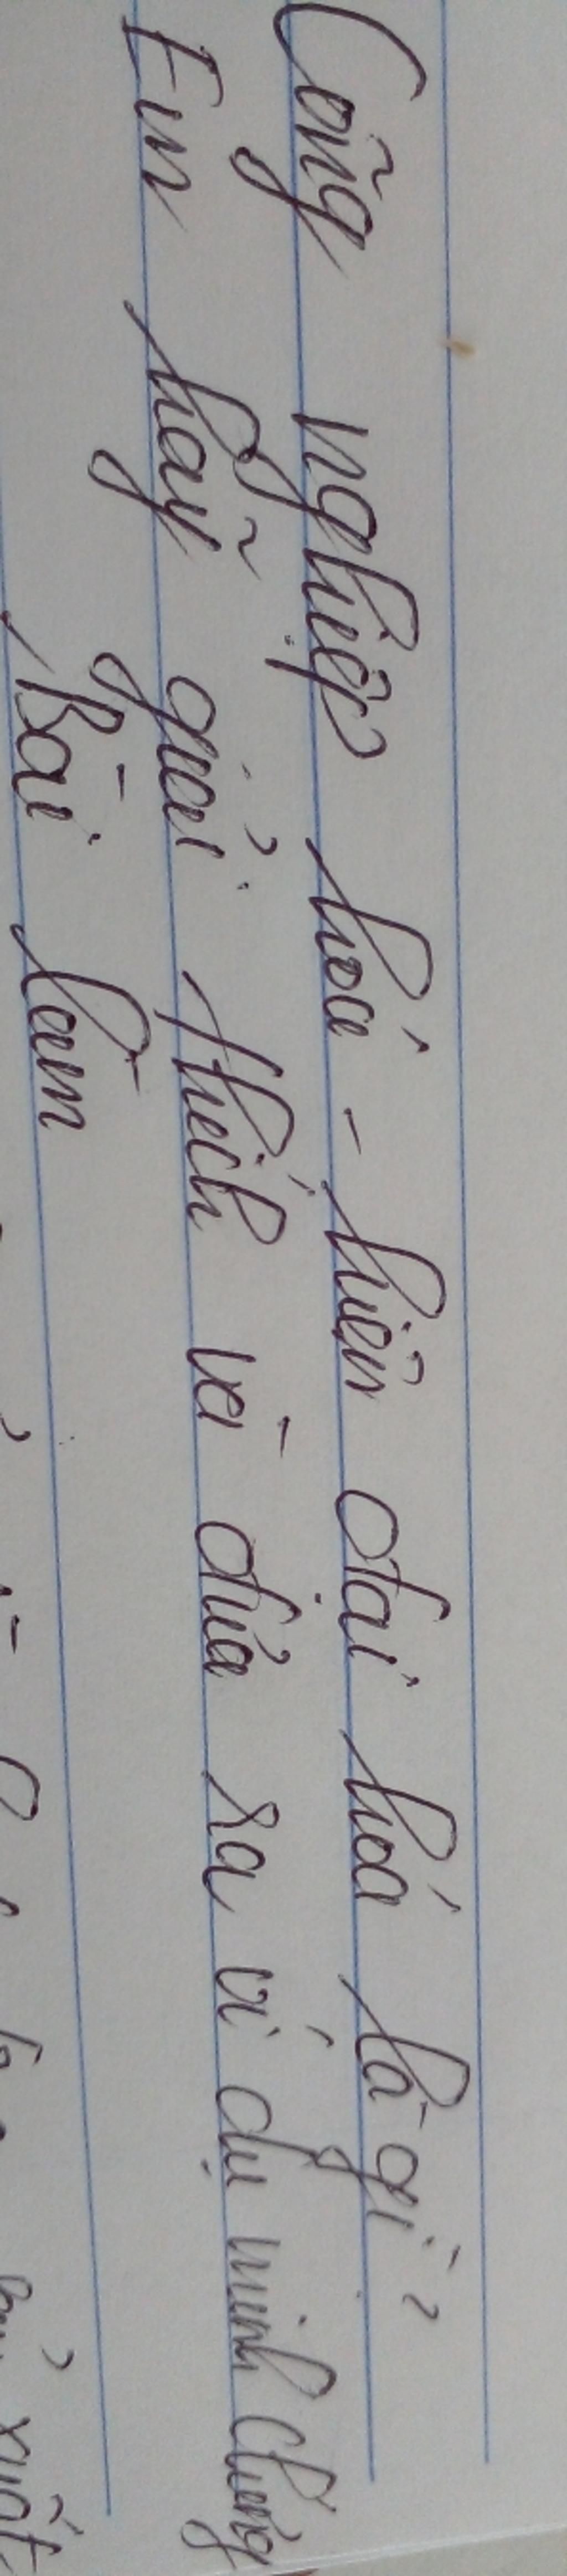 Công nghiệp hoá - hiện đại hoá là gì?
Em hãy giải thích và đưa ra ví dụ minh chứng
Bài làm
xuất